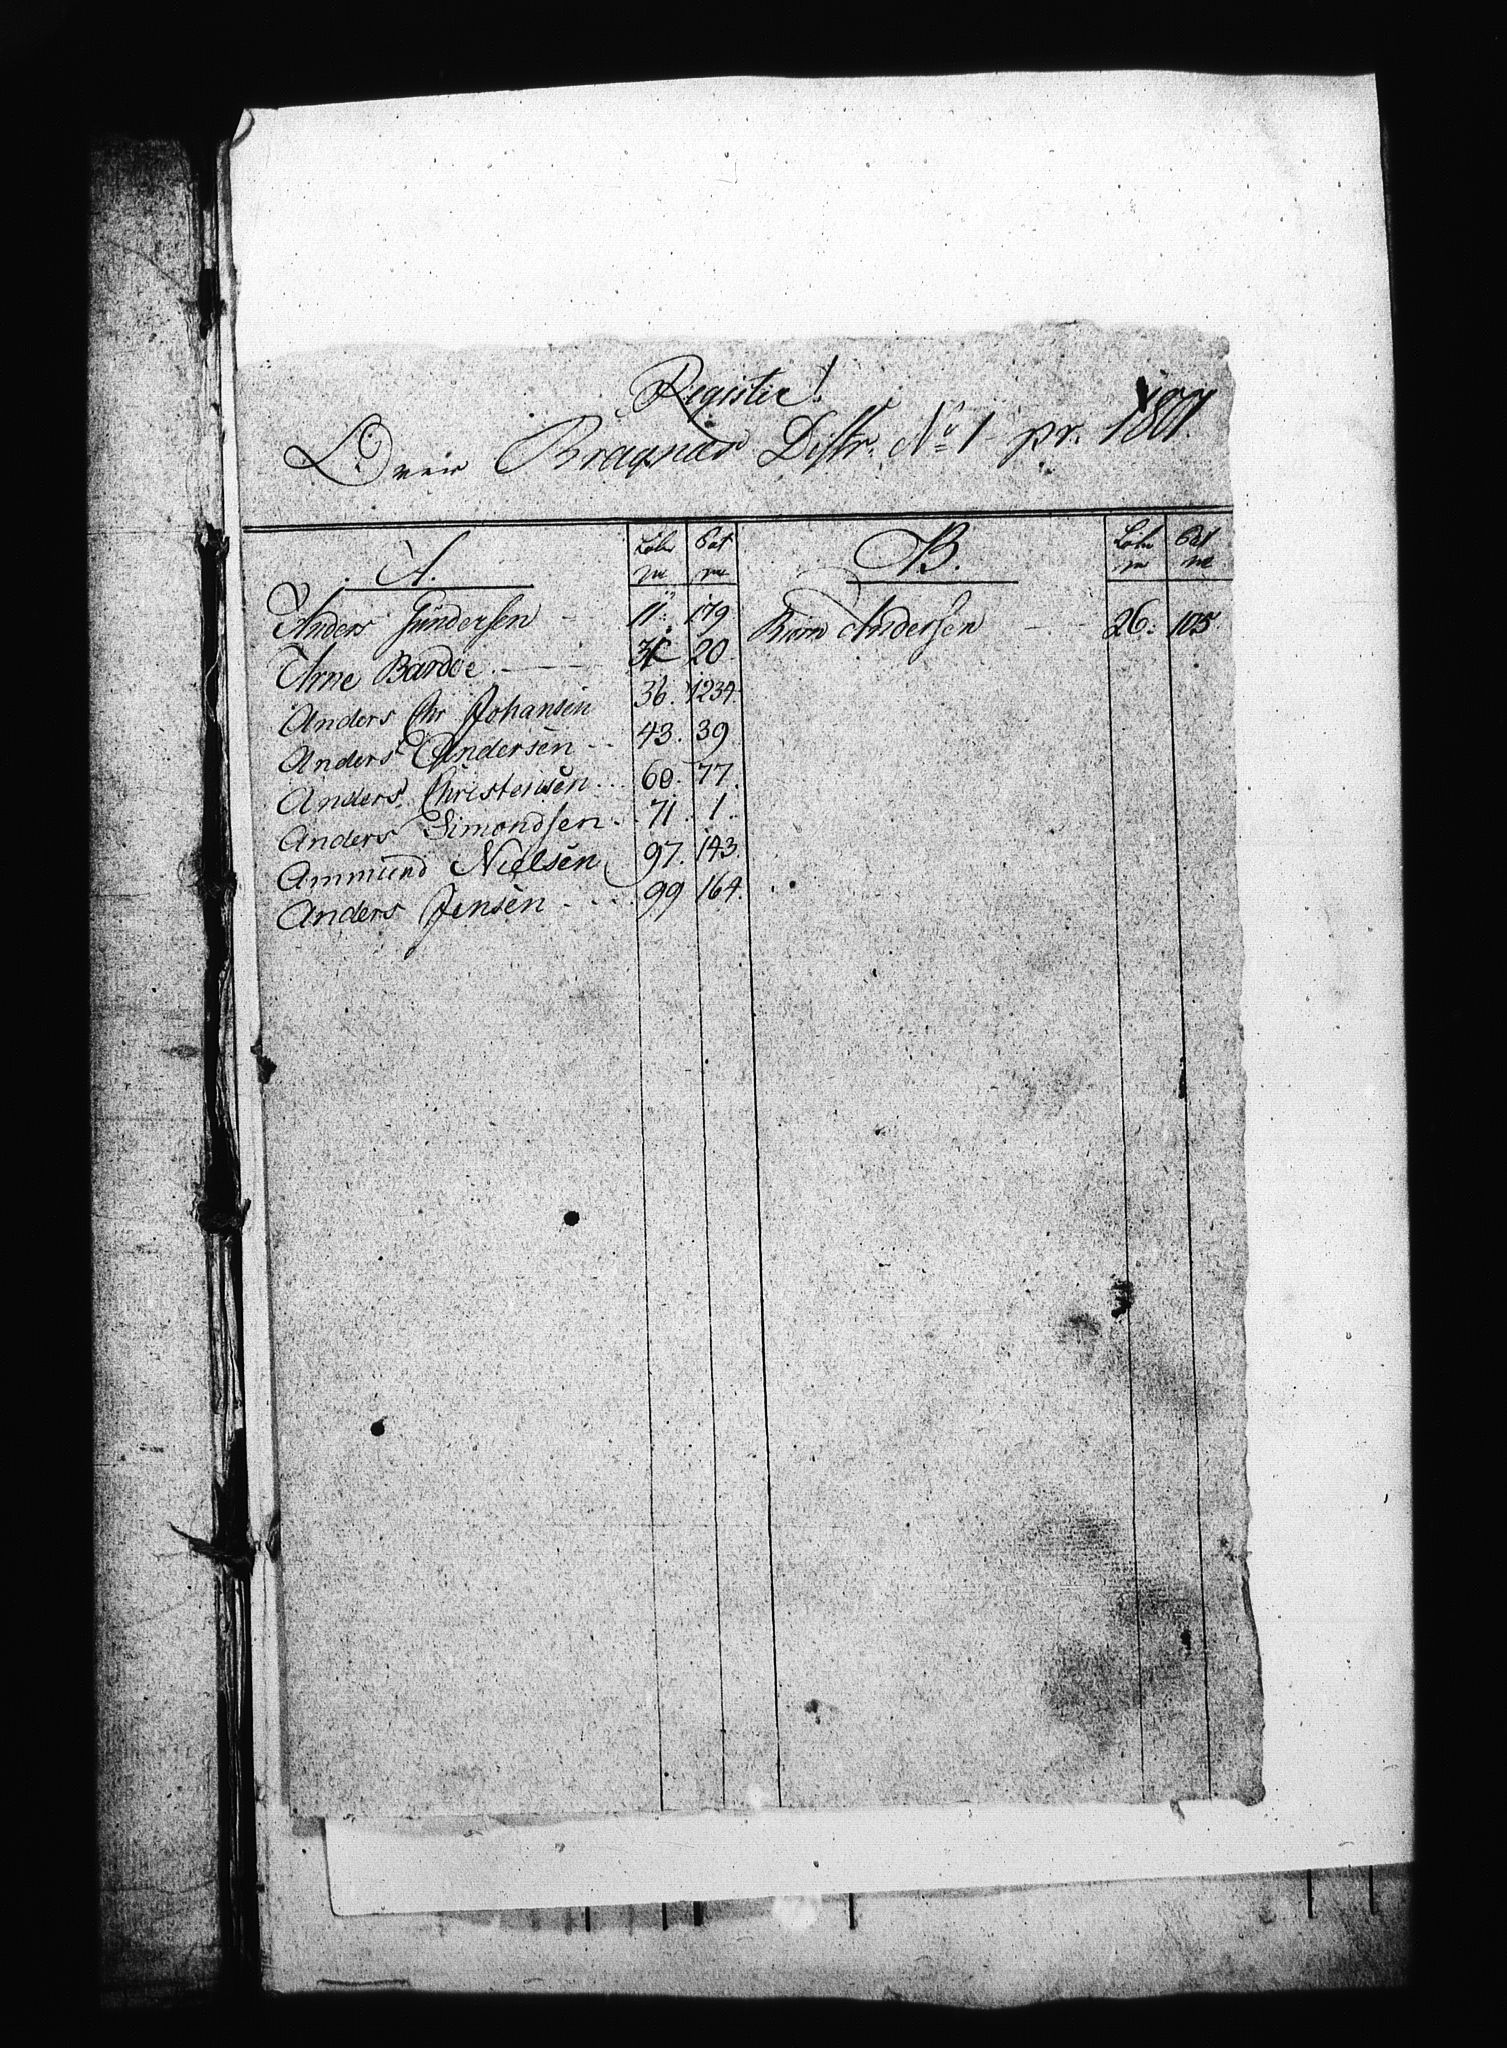 Register!
Over Bragnæs Distr. No 1 pr. 1801.
A. Løbe nr Pat nr B. Løbe nr Pat nr
Anders Gundersen 11. 179 Biørn Andersen 26. 105
Arne Bardoe 20
Anders Chr Johansen 36. 1234.
Anders Andersen 43. 39
Anders Christensen 60. 77.
Anders Simondsen 71. 1.
Ammund Nielsen 97. 143.
Anders Jensen 99 164.